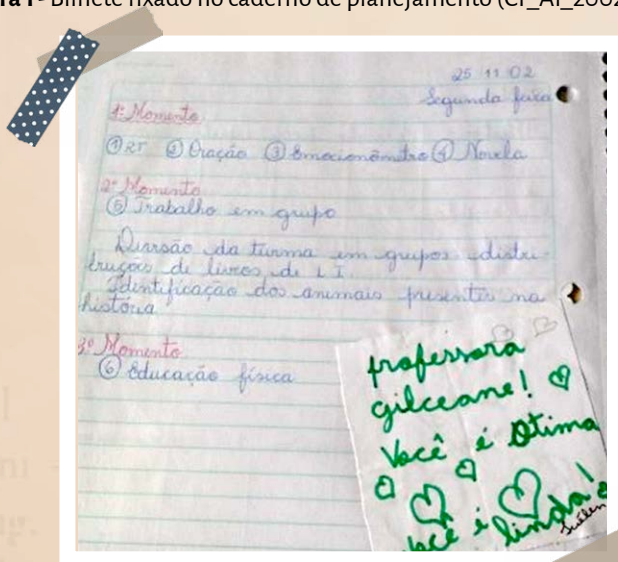 Bilhete fixado no caderno de planejamento
25 11 02
Segunda feira
1º Momento
① RT ② Oração ③ Emocionômetro ④ Novela
2º Momento
⑤ Trabalho em grupo
Divisão da turma em grupos distri
buições de livros de L I.
Identificação dos animais presentes na
história
3º Momento
⑥ Educação física
professora
gilceane!
Você é Otima
você é linda!
Suélen